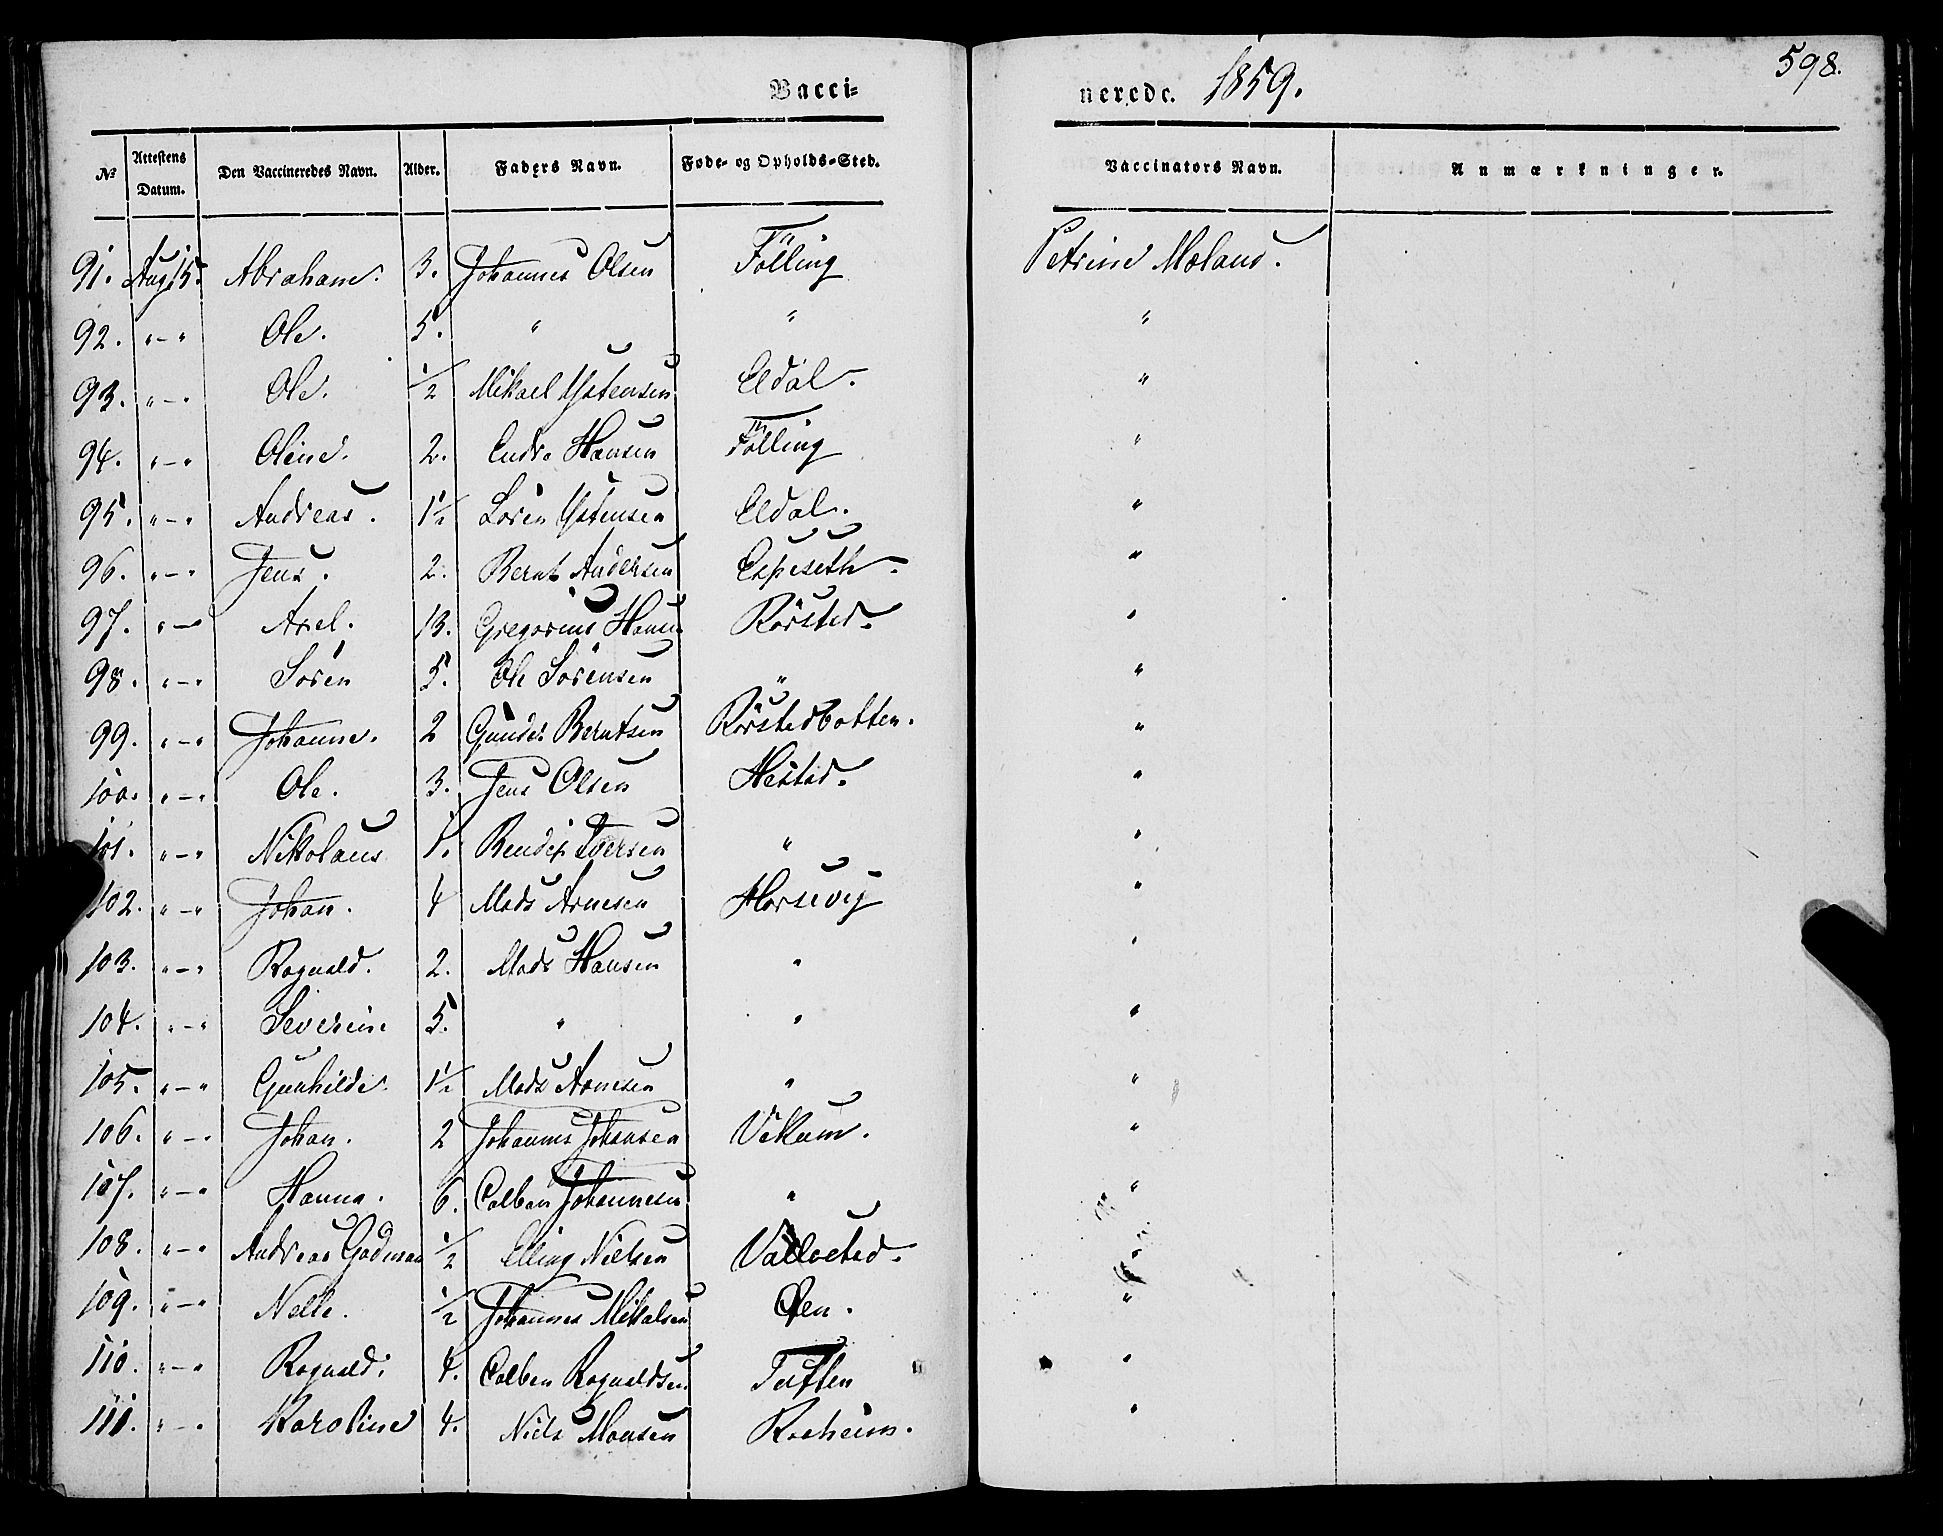 Vacci-
nerede. 1859.
598.
№ Attestens Datum. Den Vaccineredes Navn. Alder. Faders Navn. Føde- og Opholds-Sted. Vaccinators Navn. Anmærkninger.
91. Aug 15. Abraham. 3. Johannes Olsen Fölling Petrine Mæland.
92. " - " Ole. 5. " " "
93. " - " Ole. 1/2 Mikael Ystensen Eldal. "
94. " - " Oline. 2. Endre Hansen Fölling "
95. " - " Andreas. 1 1/2 Sören Ystensen Eldal. "
96. " - " Jens. 2. Bernt Andersen Espeseth. "
97. " - " Axel. 13. Gregorius Hansen Rörsted. "
98. " - " Sören 5. Ole Sörensen " "
99. " - " Johanne. 2 Gunder Berntsen Rörstedbotten. "
100. " - " Ole. 3. Jens Olsen Hestad. "
101. " - " Nikolaus 1. Bendix Iversen " "
102. " - " Johan. 4 Mads Arnesen Horsevig "
103. " - " Ragnald. 2. Mads Hansen " "
104. " - " Severine 5. " " "
105. " - " Gunhilde. 1 1/2 Mads Arnesen " "
106. " - " Johan. 2 Johannes Johansen Vikum. "
107. " - " Hanna. 6. Colben Johannesen " "
108. " - " Andreas 1/2 Elling Nielsen "
109. " - " Nelle. 1/2 Johannes Mikalsen Øen. "
110. " - " Ragnald. 4. Colben Ragnaldsen Tuften "
111. " - " Karoline 4. Niels Monsen "